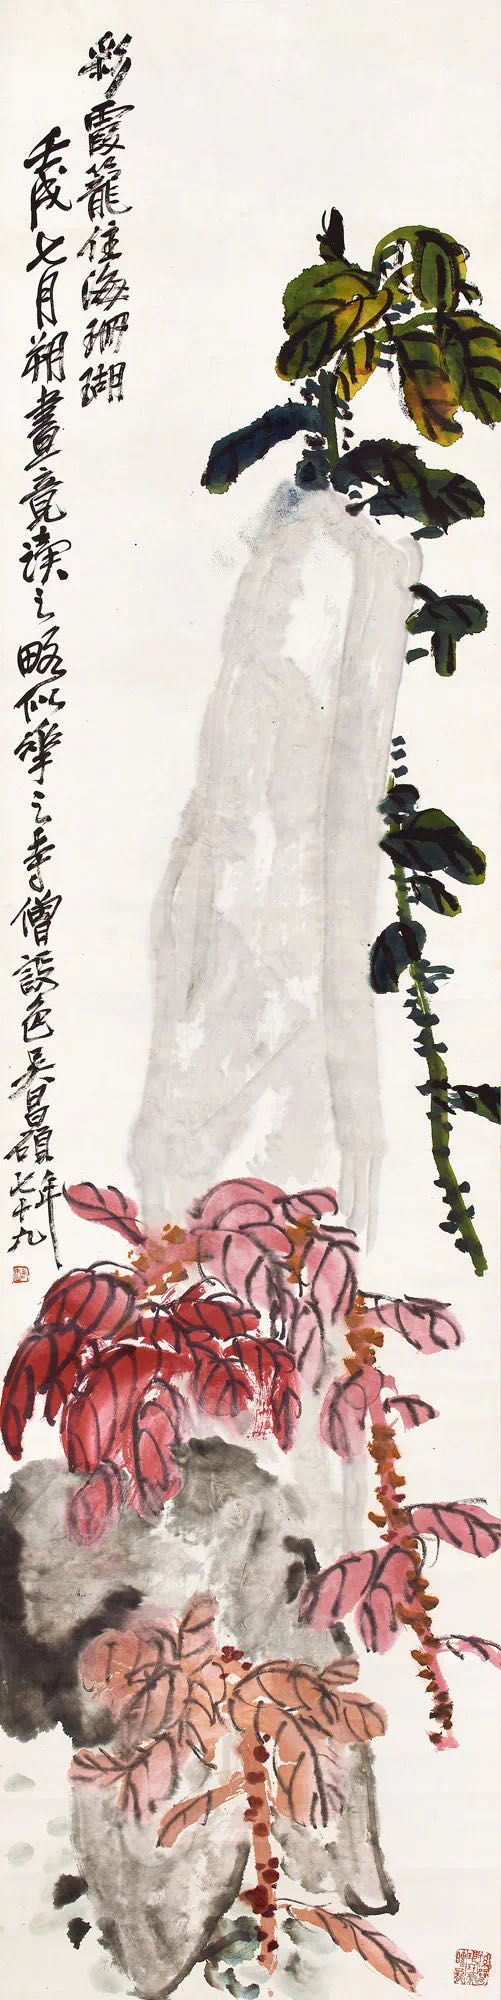 彩霞籠住海珊瑚
壬戌七月朔畫竟讀之略似華之寺僧設色吳昌碩
年七十九